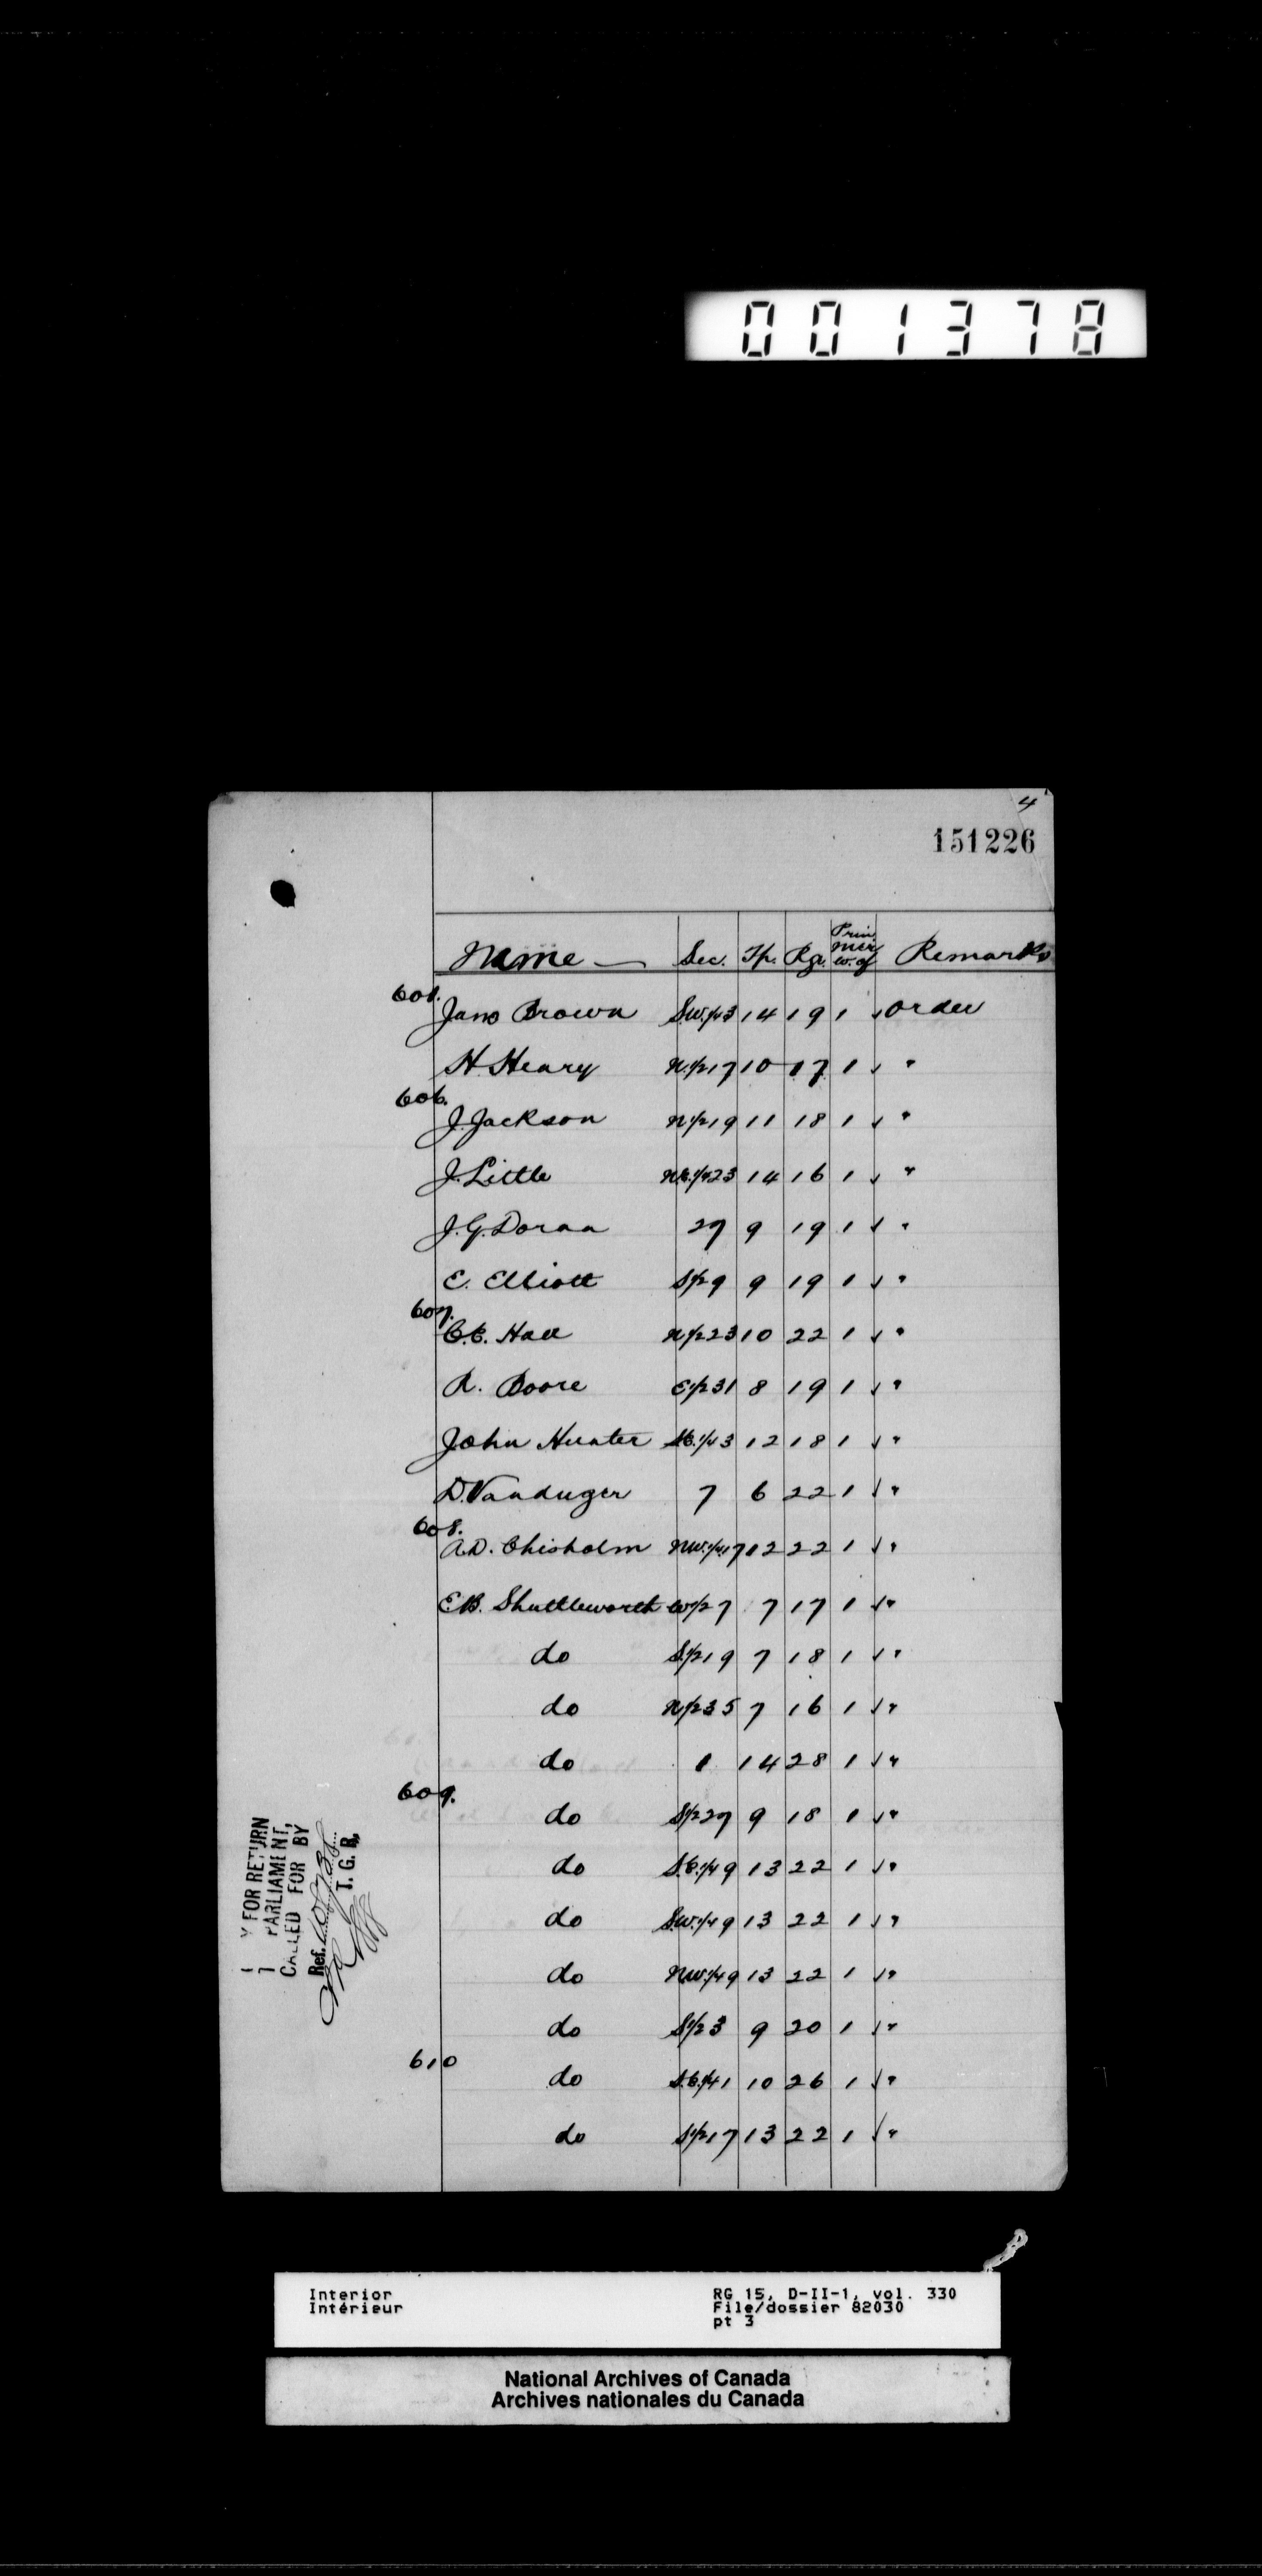 001378
4
151226
Name — Sec. Tp. Rge. Prin Mer W. of Remarks
Jas Brown S.W.1/4 3 14 19 1 √ Order
H. Henry N.1/2 17 10 17 1 √ "
606.
J. Jackson N1/2 19 11 18 1 √ "
J. Little N.E.1/4 23 14 16 1 √ "
J.G. Doran 27 9 19 1 √ "
E. Elliott S1/2 9 9 19 1 √ "
607.
C.C. Hall N1/2 23 10 22 1 √ "
R. Poore E1/2 31 8 19 1 √ "
John Hunter S.E.1/4 3 12 18 1 √ "
D. Vanduger 7 6 22 1 √ "
608.
A.D. Chisholm N.W.1/4 17 12 22 1 √ "
E.B. Shuttleworth W1/2 7 7 17 1 √ "
do S.1/2 19 7 18 1 √ "
do N1/2 35 7 16 1 √ "
do 1 14 28 1 √ "
609.
do S1/2 27 9 18 1 √ "
do S.E.1/4 9 13 22 1 √ "
do S.W.1/4 9 13 22 1 √ "
do N.W.1/4 9 13 22 1 √ "
do S1/2 3 9 20 1 √ "
610
do S.E.1/4 1 10 26 1 √ "
do S1/2 17 13 22 1 √ "
Y FOR RETURN
PARLIAMENT,
CALLED FOR BY
Ref.
T. G. R,
Interior
Intérieur
RG 15, D-II-1, vol. 330
File/dossier 82030
pt 3
National Archives of Canada
Archives nationales du Canada